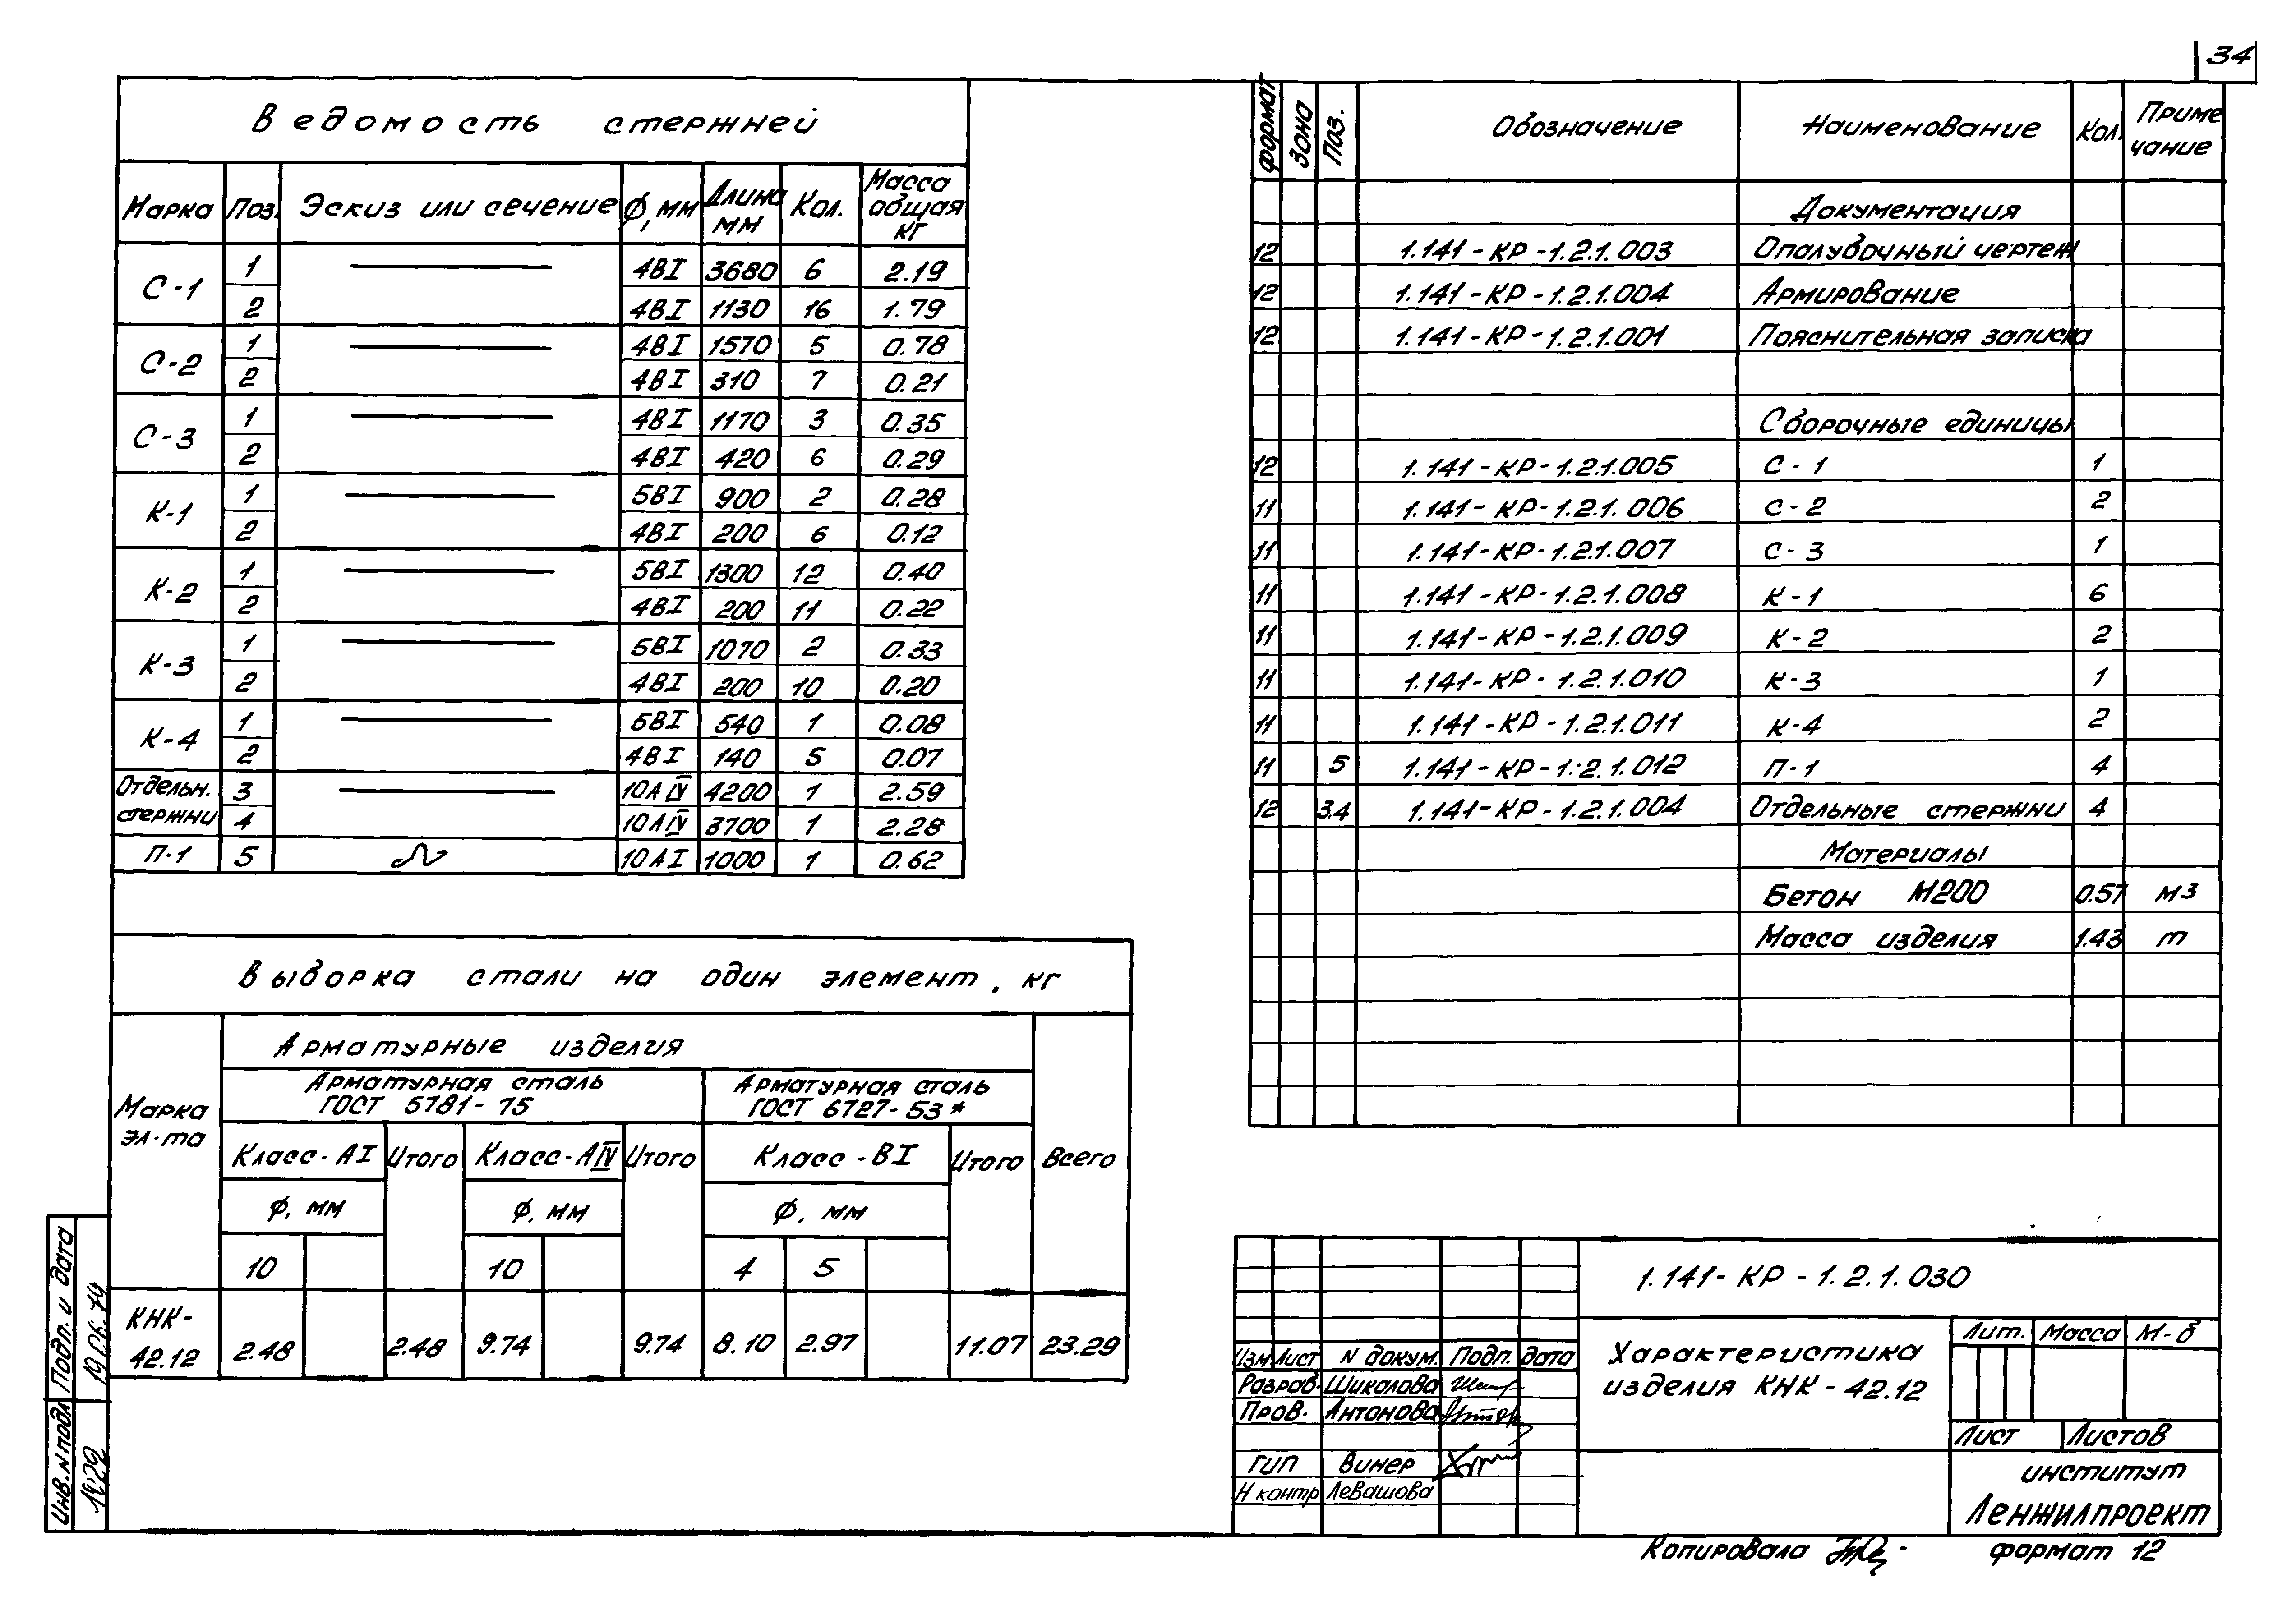 34
Ведомость стержней
Марка Поз. Эскиз или сечение ф, мм Длина мм Кол. Масса общая кг
С-1 1 4ВI 3680 6 2.19
2 4ВI 1130 16 1.79
С-2 1 4ВI 1570 5 0.78
2 4ВI 310 7 0.21
С-3 1 4ВI 1170 3 0.35
2 4ВI 420 6 0.29
К-1 1 5ВI 900 2 0.28
2 4ВI 200 6 0.12
К-2 1 5ВI 1300 12 0.40
2 4ВI 200 11 0.22
К-3 1 5ВI 1070 2 0.33
2 4ВI 200 10 0.20
К-4 1 5ВI 540 1 0.08
2 4ВI 140 5 0.07
Отдельн. стержни 3 10АIV 4200 1 2.59
4 10АIV 3700 1 2.28
П-1 5 10АI 1000 1 0.62
Выборка стали на один элемент, кг
Марка эл-та
Арматурные изделия
Всего
Арматурная сталь ГОСТ 5781-75
Арматурная сталь ГОСТ 6727-53*
Класс-АI Итого Класс-АIV Итого Класс-ВI Итого
ф, мм ф, мм ф, мм
10 10 4 5
КНК-42.12 2.48 2.48 9.74 9.74 8.10 2.97 11.07 23.29
формат Зона Поз. Обозначение Наименование Кол. Примечание
Документация
12 1.141-КР-1.2.1.003 Опалубочный чертеж
12 1.141-КР-1.2.1.004 Армирование
12 1.141-КР-1.2.1.001 Пояснительная записка
Сборочные единицы
12 1.141-КР-1.2.1.005 С-1 1
11 1.141-КР-1.2.1.006 С-2 2
11 1.141-КР-1.2.1.007 С-3 1
11 1.141-КР-1.2.1.008 К-1 6
11 1.141-КР-1.2.1.009 К-2 2
11 1.141-КР-1.2.1.010 К-3 1
11 1.141-КР-1.2.1.011 К-4 2
11 5 1.141-КР-1.2.1.012 П-1 4
12 3.4 1.141-КР-1.2.1.004 Отдельные стержни 4
Материалы
Бетон М200 0.57 м3
Масса изделия 1.43 т
1.141-КР-1.2.1.030
Изм Лист N докум. Подп. дата
Разраб. Шикалова
Пров. Антонова
ГИП Винер
Н контр Левашова
Характеристика
изделия КНК-42.12
Лит. Масса М-б
Лист Листов
институт
Ленжилпроект
Копировала
формат 12
Инв. N подл Подп. и дата